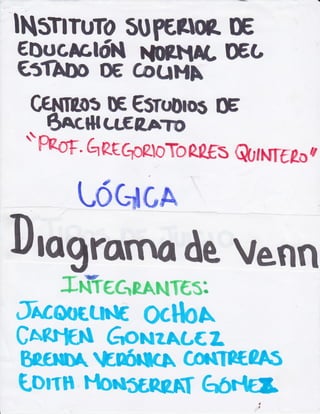 INSTITUTO SUPERIOR DE
EDUCACIÓN NORMAL DEL
ESTADO DE COLIMA
CENTROS DE ESTUDIOS DE
BACHILLERATO
"PROF. GREGORIO TORRES QUINTERO"
LÓGICA
Diagrama de Venn
INTEGRANTES:
JACQUELINE OCHOA
CARMEN GONZALEZ
BRENDA VERÓNICA CONTRERAS
EDITH MONSERRAT GÓMEZ